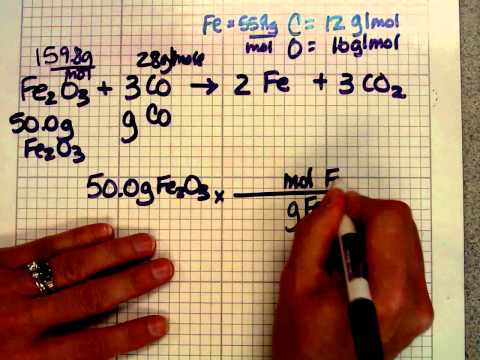 Fe = 55.9g/mol C = 12 g/mol
O = 16g/mol
159.8g/mol 28g/mole
Fe₂O₃ + 3CO → 2 Fe + 3CO₂
50.0g Fe₂O₃ g CO
50.0g Fe₂O₃ × mol F
g F